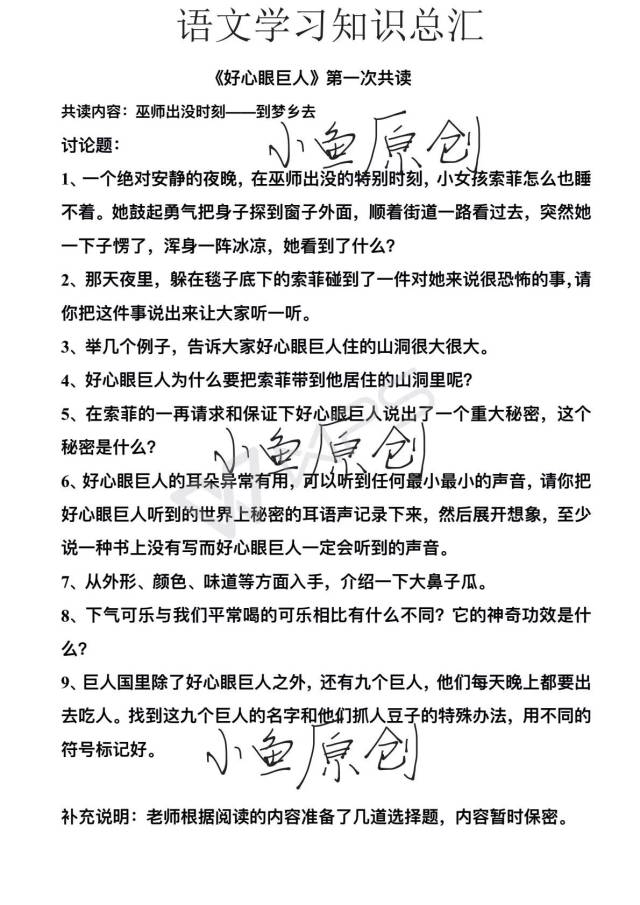 语文学习知识总汇
《好心眼巨人》第一次共读
共读内容：巫师出没时刻——到梦乡去
讨论题：
小鱼原创
1、一个绝对安静的夜晚，在巫师出没的特别时刻，小女孩索菲怎么也睡
不着。她鼓起勇气把身子探到窗子外面，顺着街道一路看过去，突然她
一下子愣了，浑身一阵冰凉，她看到了什么？
2、那天夜里，躲在毯子底下的索菲碰到了一件对她来说很恐怖的事，请
你把这件事说出来让大家听一听。
3、举几个例子，告诉大家好心眼巨人住的山洞很大很大。
4、好心眼巨人为什么要把索菲带到他居住的山洞里呢？
5、在索菲的一再请求和保证下好心眼巨人说出了一个重大秘密，这个
秘密是什么？
小鱼原创
6、好心眼巨人的耳朵异常有用，可以听到任何最小最小的声音，请你把
好心眼巨人听到的世界上秘密的耳语声记录下来，然后展开想象，至少
说一种书上没有写而好心眼巨人一定会听到的声音。
7、从外形、颜色、味道等方面入手，介绍一下大鼻子瓜。
8、下气可乐与我们平常喝的可乐相比有什么不同？它的神奇功效是什
么？
9、巨人国里除了好心眼巨人之外，还有九个巨人，他们每天晚上都要出
去吃人。找到这九个巨人的名字和他们抓人豆子的特殊办法，用不同的
符号标记好。
小鱼原创
补充说明：老师根据阅读的内容准备了几道选择题，内容暂时保密。